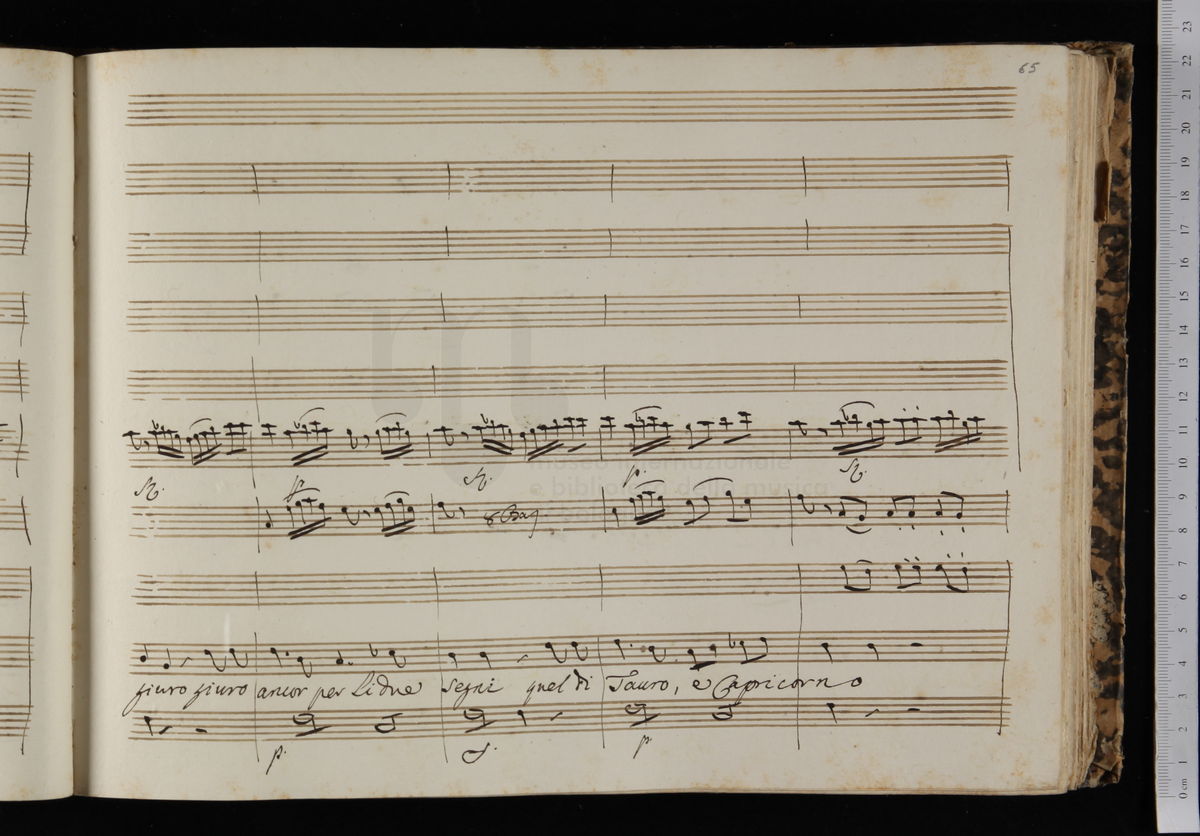 65
museo internazionale
e biblioteca della musica
f.
p.
f.
p.
f.
8 Bas
giuro giuro ancor per li due segni quel di Tauro, e Capricorno
p.
f.
p.
0 cm 1 2 3 4 5 6 7 8 9 10 11 12 13 14 15 16 17 18 19 20 21 22 23